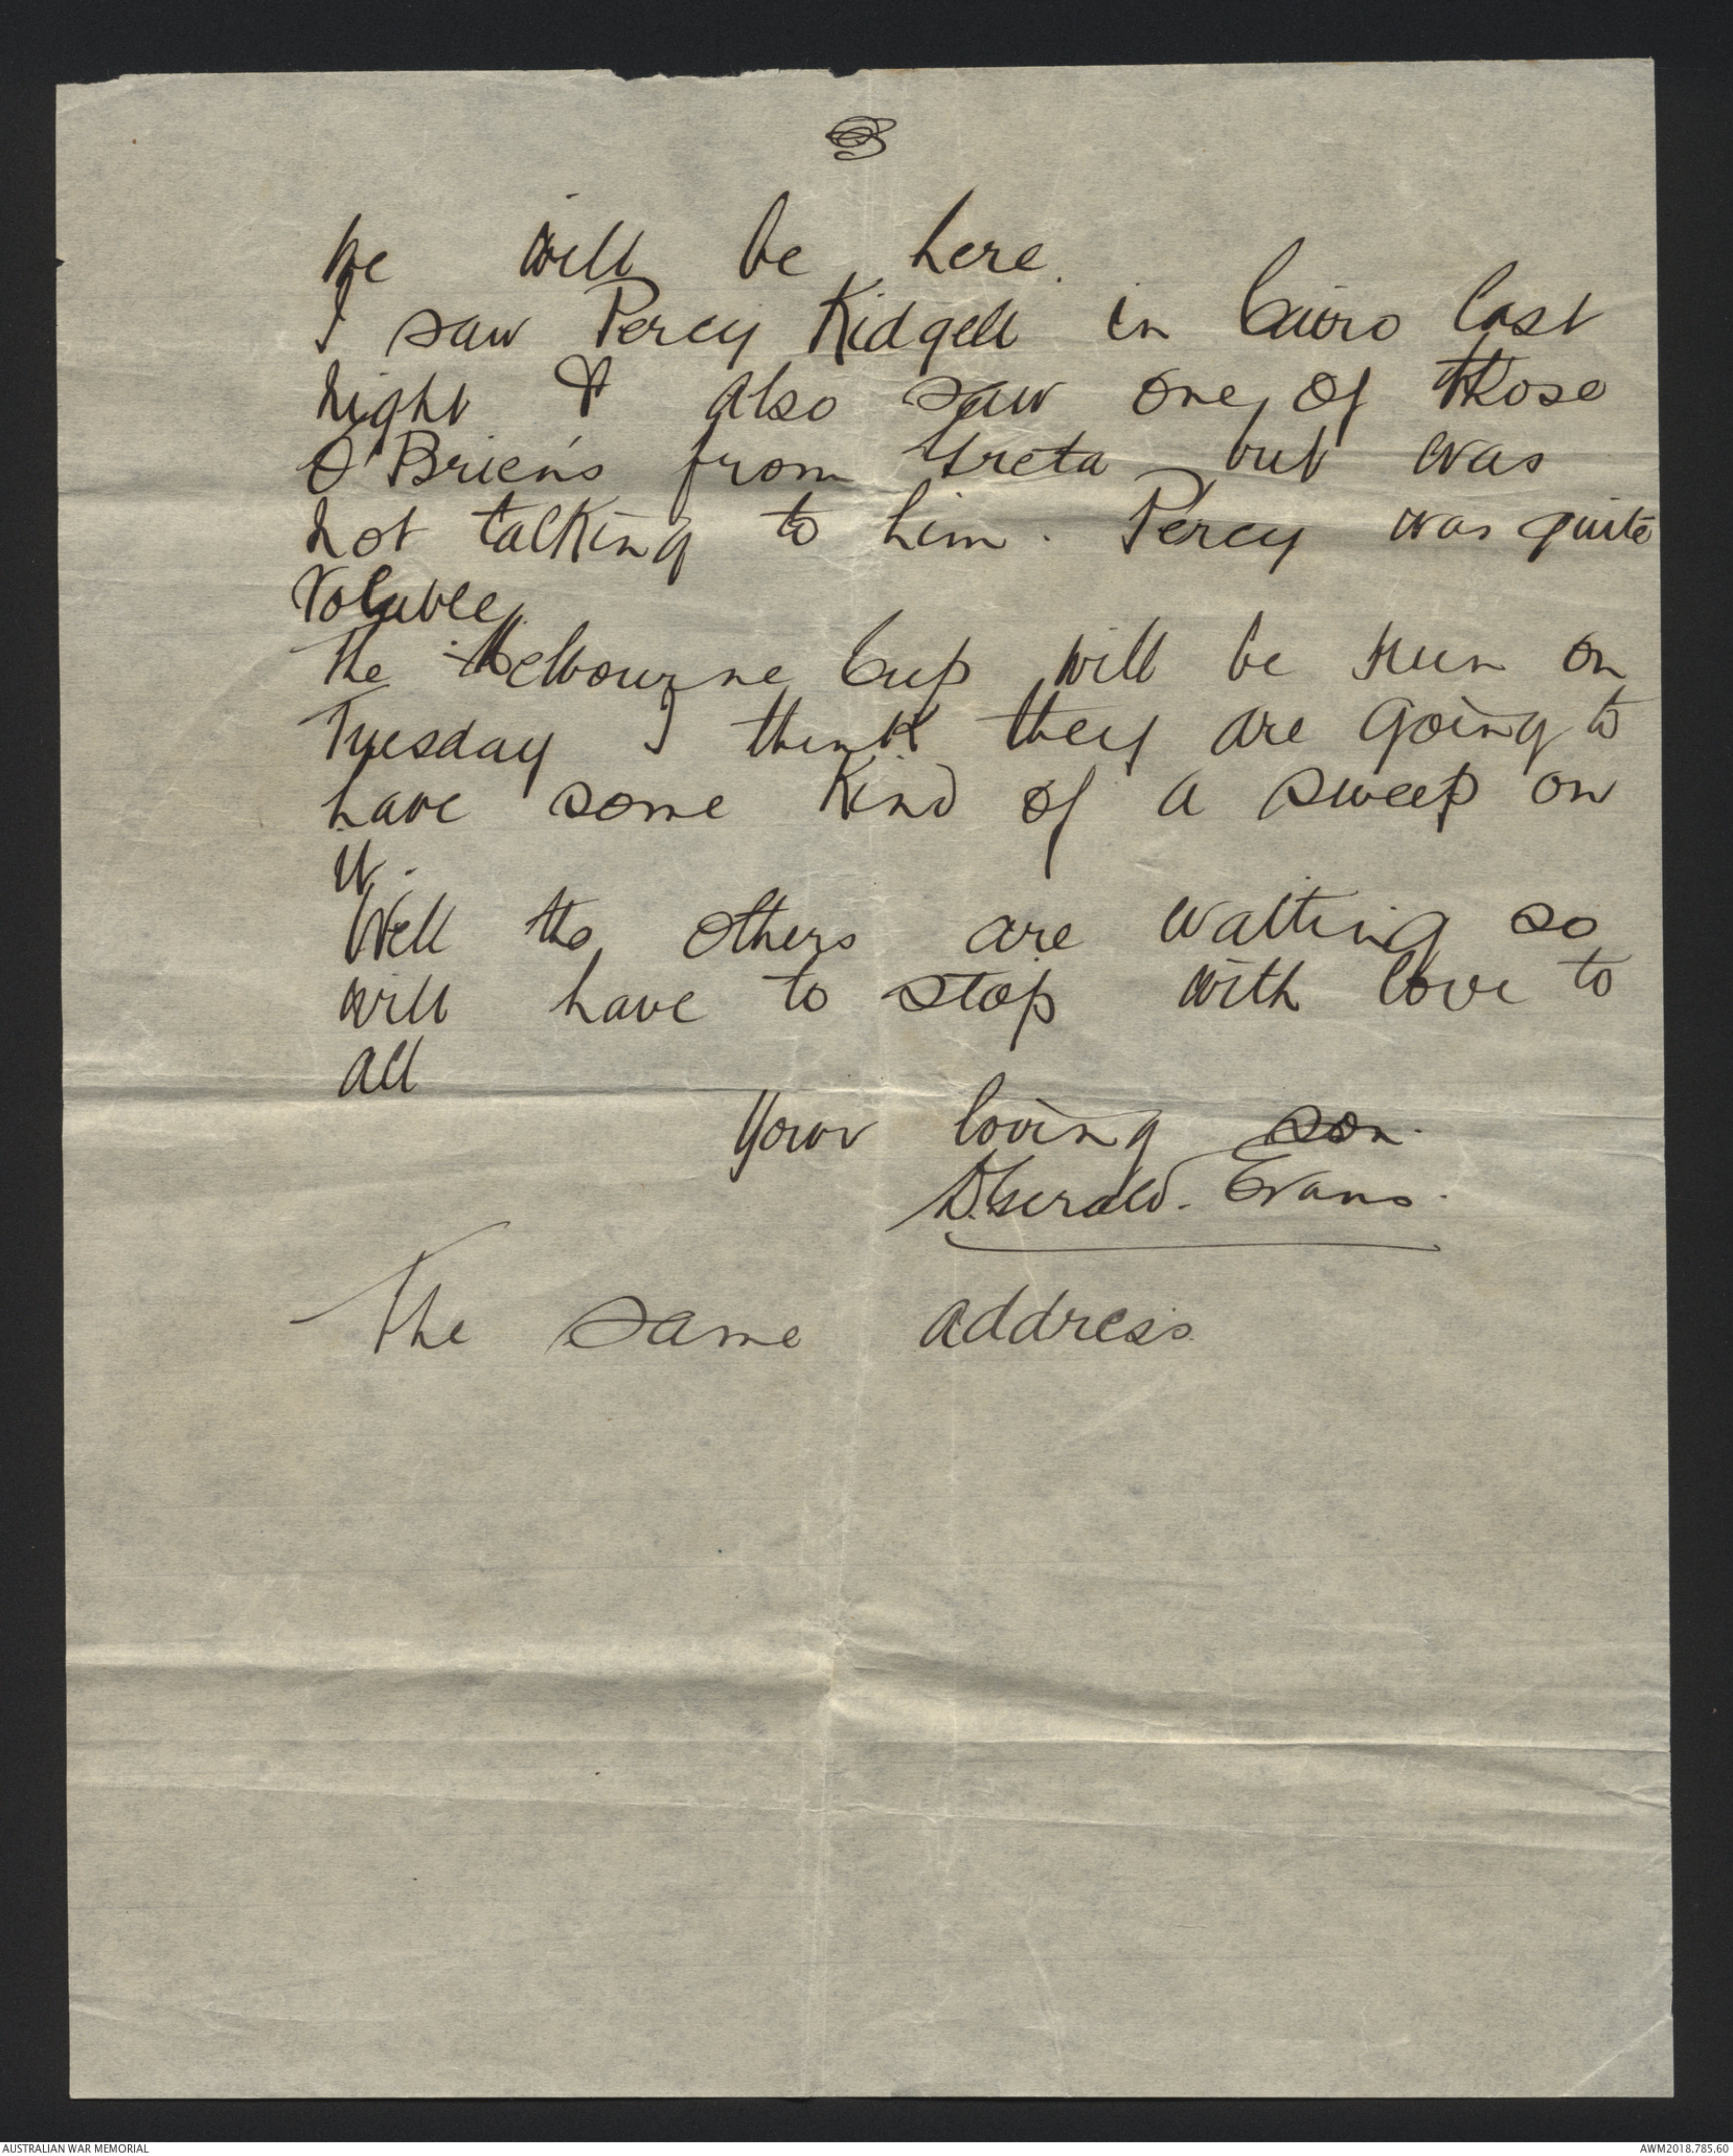 we will be here.
I saw Percy Kidgell in Cairo last
night & also saw one of those
O'Brien's from Greta but was
not talking to him. Percy was quite
Voluble.
The Melbourne Cup will be run on
Tuesday I think they are going to
have some kind of a sweep on
it.
Well the others are waiting so
will have to stop with love to
all
Your loving son.
D. Gerald. Evans.
The same address
AUSTRALIAN WAR MEMORIAL
AWM2018.785.60